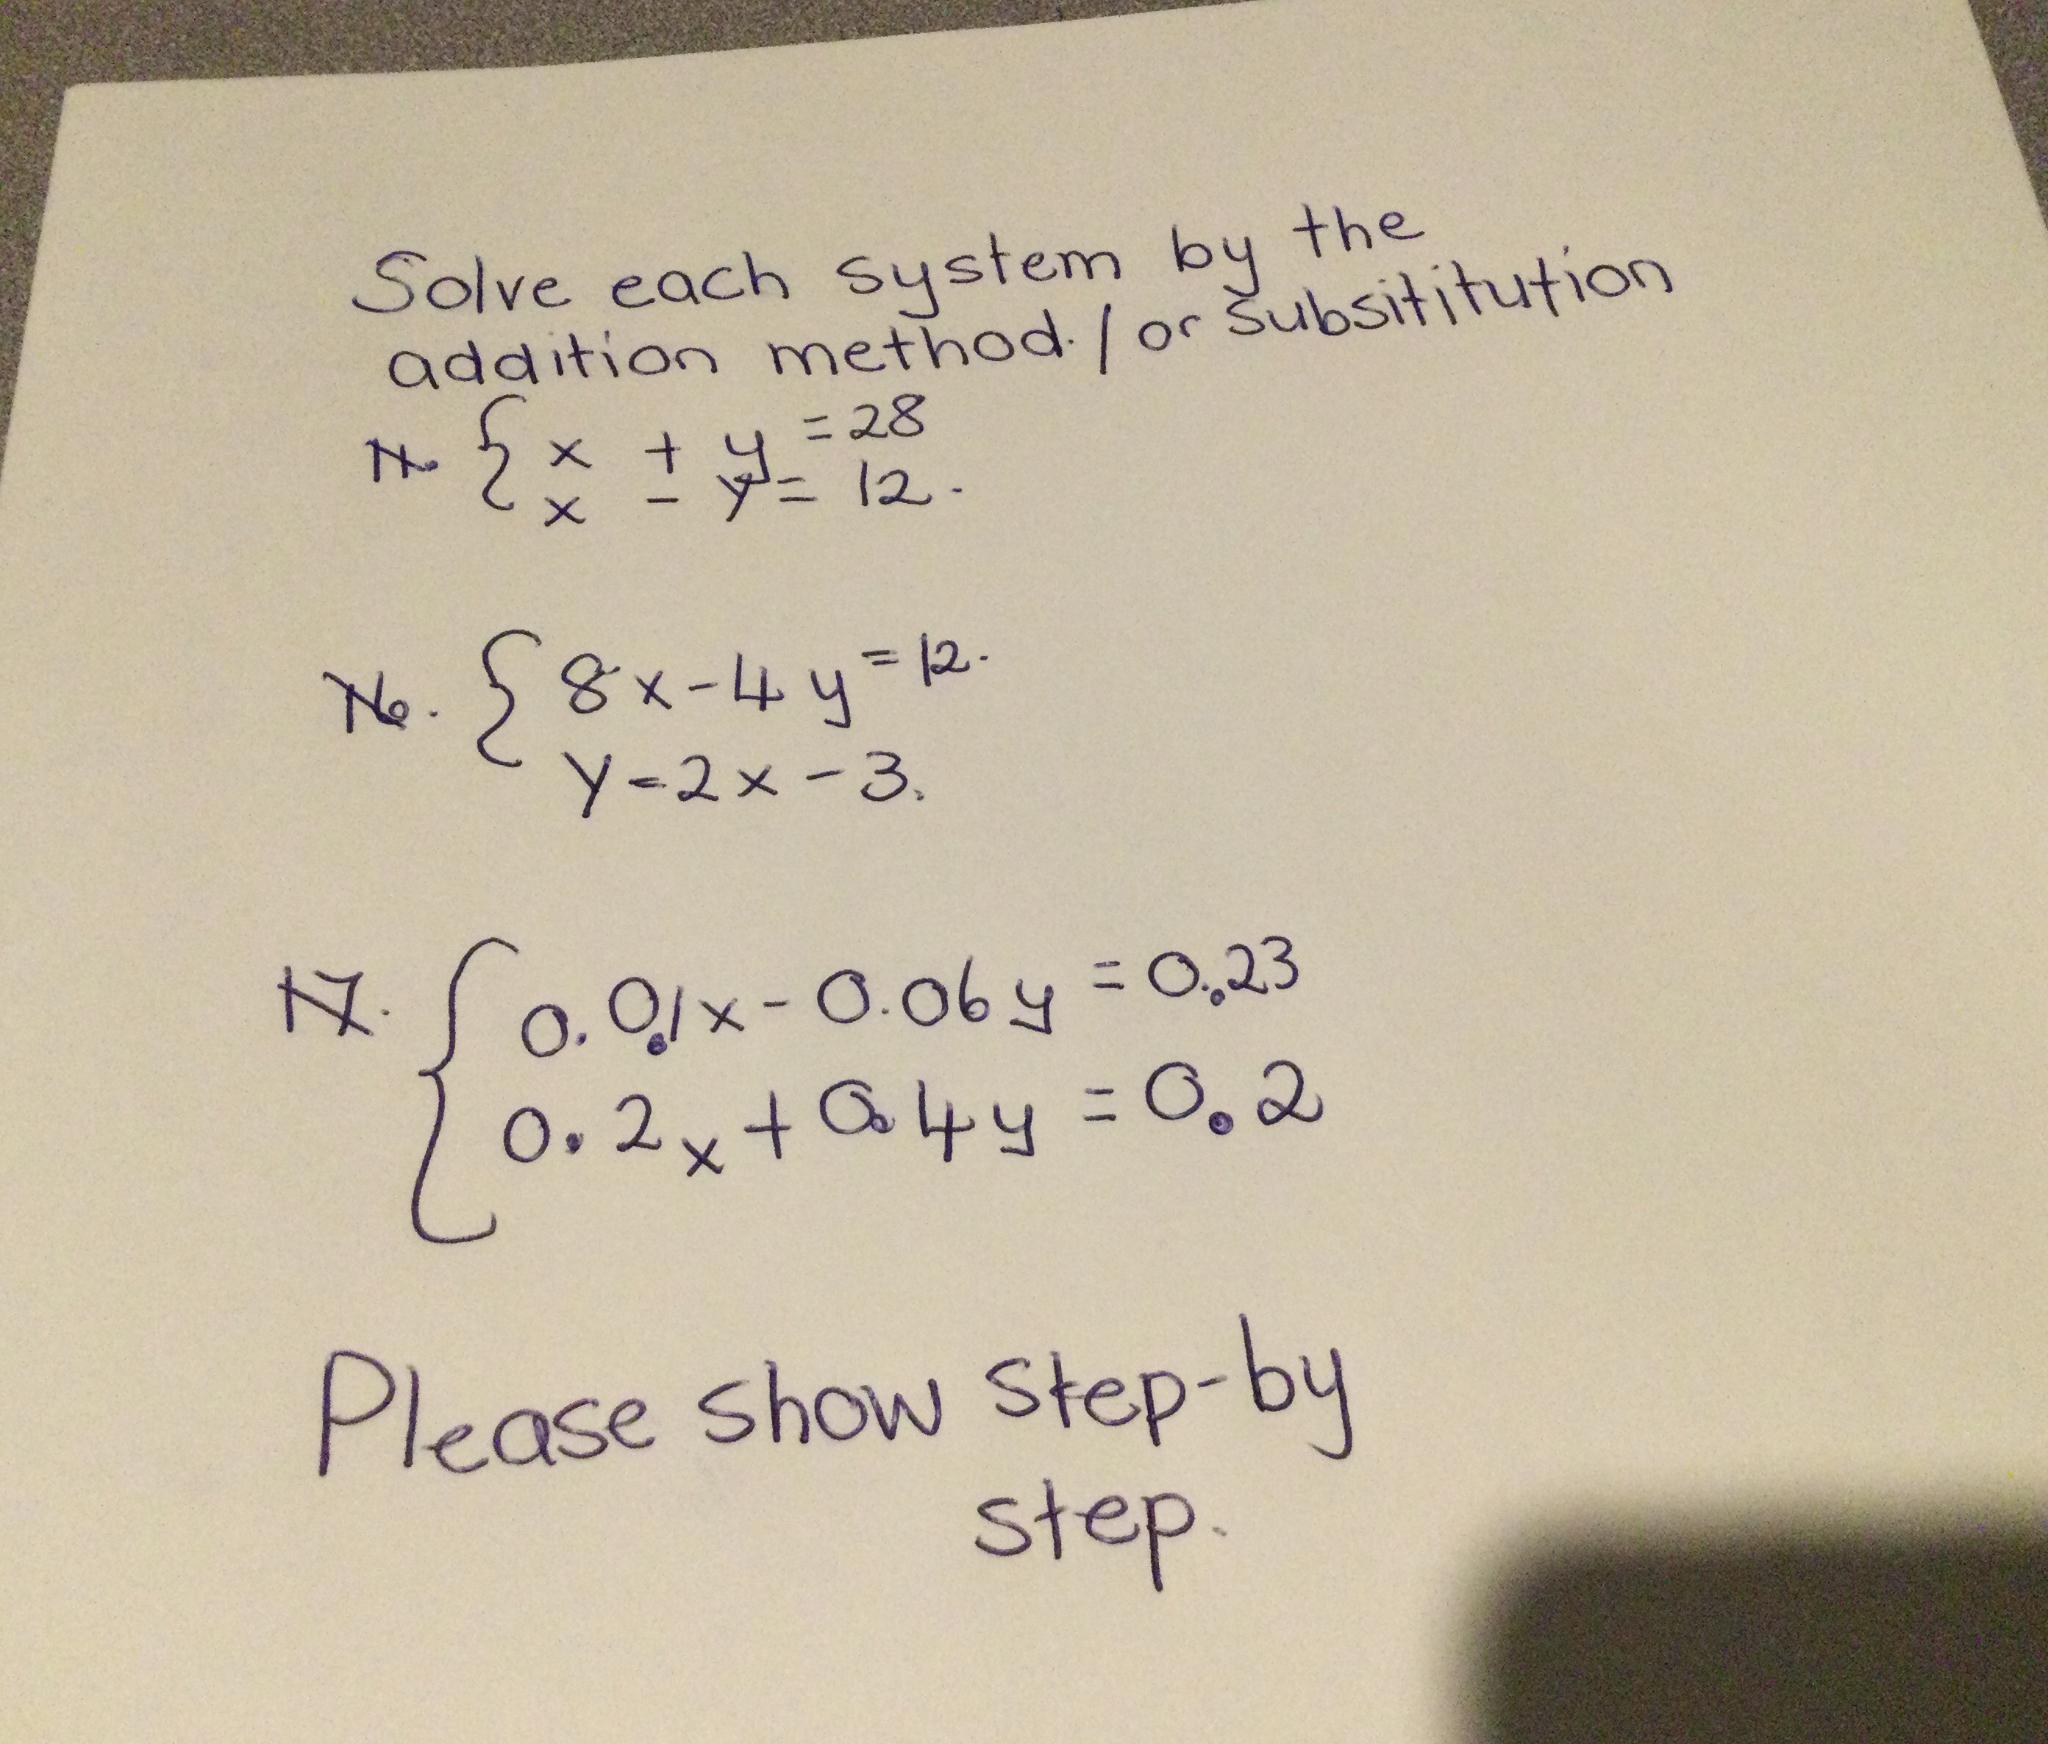 Solve each system by the
addition method. / or subsititution
x + y = 28
x - y = 12.
16. 8x - 4y = 12.
y = 2x - 3.
17. 0.01x - 0.06y = 0.23
0.2x + 0.4y = 0.2
Please show step-by
step.